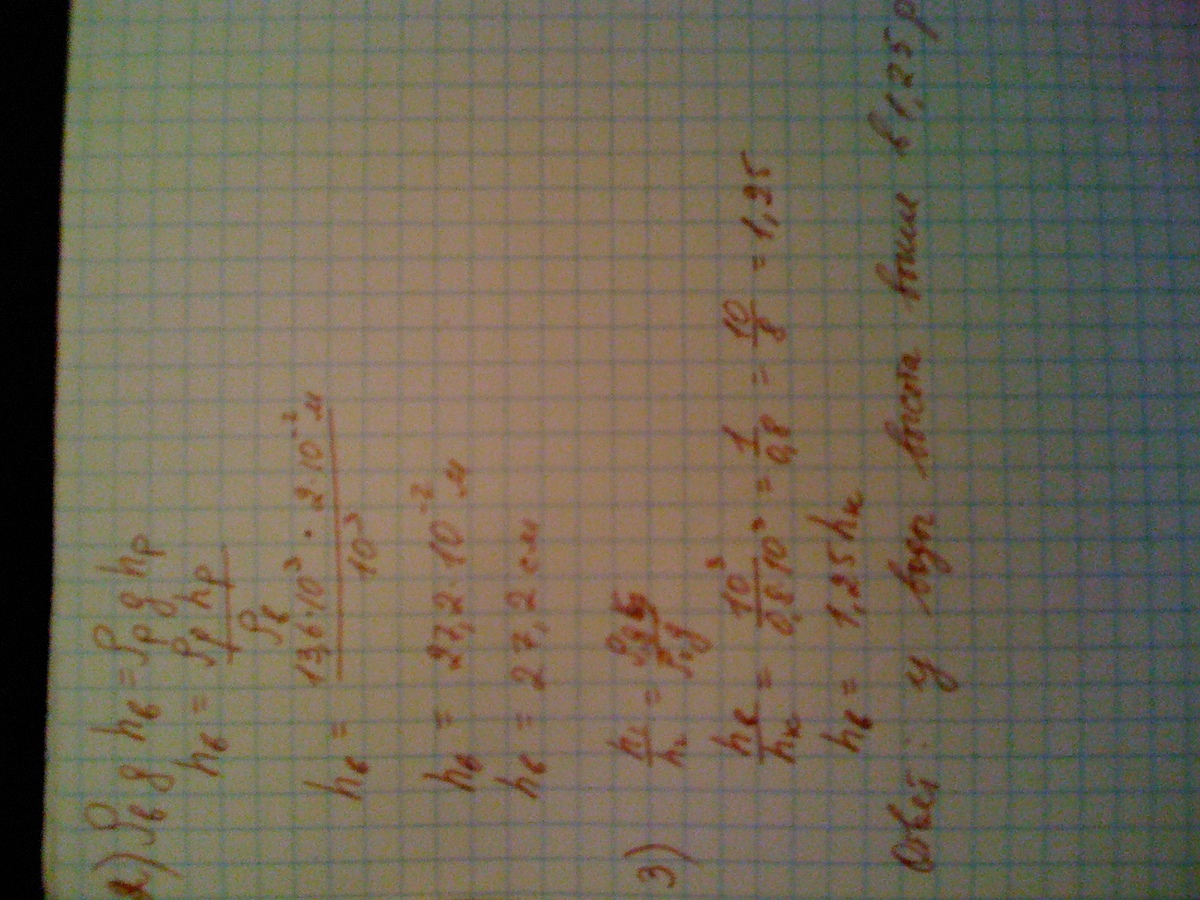 2) ρв g hв = ρр g hр
hв = ρр hр / ρв
hв = 13,6·10³ · 2·10⁻² м / 10³
hв = 27,2·10⁻² м
hв = 27,2 см
3)
hв / hк = 10³ / 0,8·10³ = 1 / 0,8 = 10 / 8 = 1,25
hв = 1,25 hк
Ответ: у воды высота выше в 1,25 р